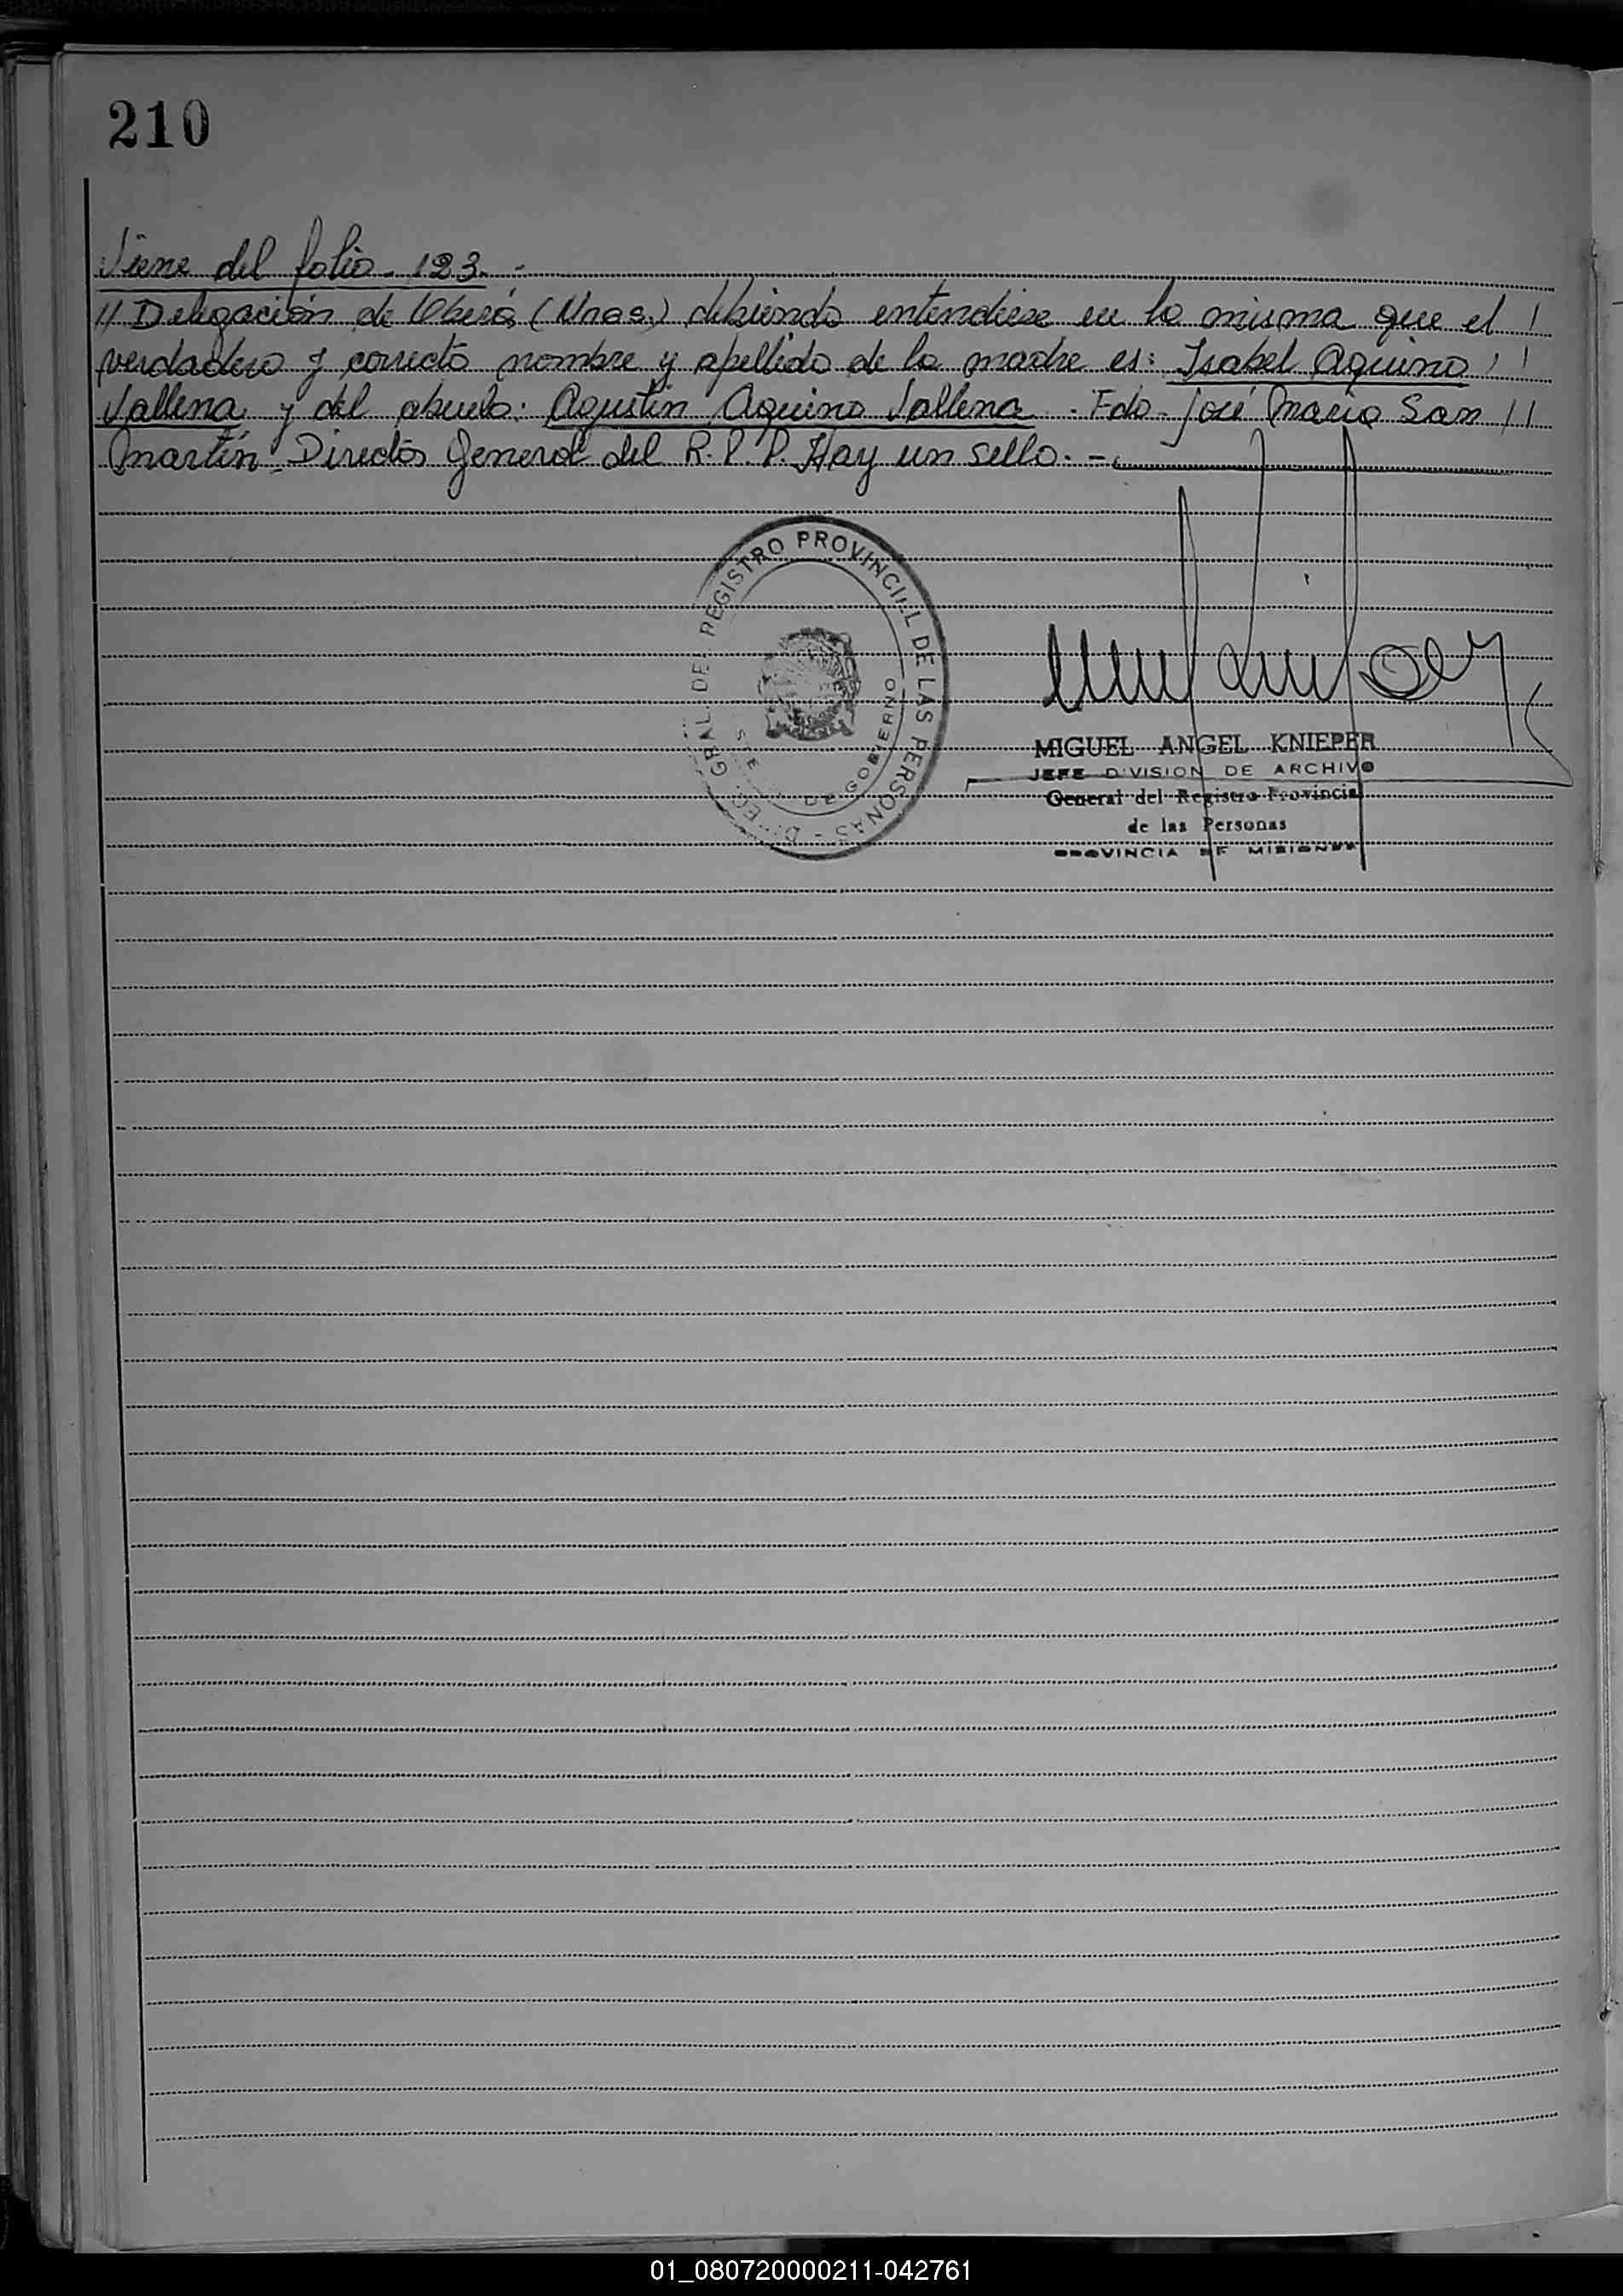 210
Viene del folio. 123. -
// Delegación de Oberá (Mnes.) debiendo entenderse en la misma que el /
verdadero y correcto nombre y apellido de la madre es: Isabel Aquino / /
Vallena y del abuelo: Agustín Aquino Vallena. Fdo. José María San //
Martín. Director General del R.P.P. Hay un sello. -
REGISTRO PROVINCIAL DE LAS PERSONAS - DIREC. GRAL. DEL
DE GOBIERNO
MIGUEL ANGEL KNIEPER
JEFE DIVISION DE ARCHIVO
General del Registro Provincial
de las Personas
PROVINCIA DE MISIONES
01_080720000211-042761